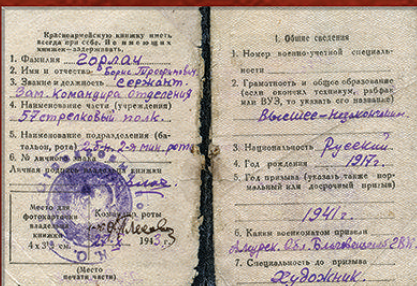 Красноармейскую книжку иметь
всегда при себе. Не имеющих
книжек—задерживать.
1. Фамилия Горлач
2. Имя и отчество Борис Трофимович
3. Звание и должность сержант
Зам. командира отделения
4. Наименование части (учреждения)
57 стрелковый полк.
5. Наименование подразделения (ба-
тальон, рота) 2 б-н, 2-я мин. рота
6. № личного знака
Личная подпись владельца книжки
Место для
фотокарточки
владельца
книжки
4 х 3½ см.
Командир роты
1943 г.
(Место
печати части)
I. Общие сведения
1. Номер военно-учетной специаль-
ности
2. Грамотность и общее образование
(если окончил техникум, рабфак
или ВУЗ, то указать его название)
Высшее-незаконченное
3. Национальность Русский
4. Год рождения 1917г.
5. Год призыва (указать также нор-
мальный или досрочный призыв)
1941г.
6. Каким военкоматом призван
Амурск. Обл. Благовещенск
7. Специальность до призыва
Художник.